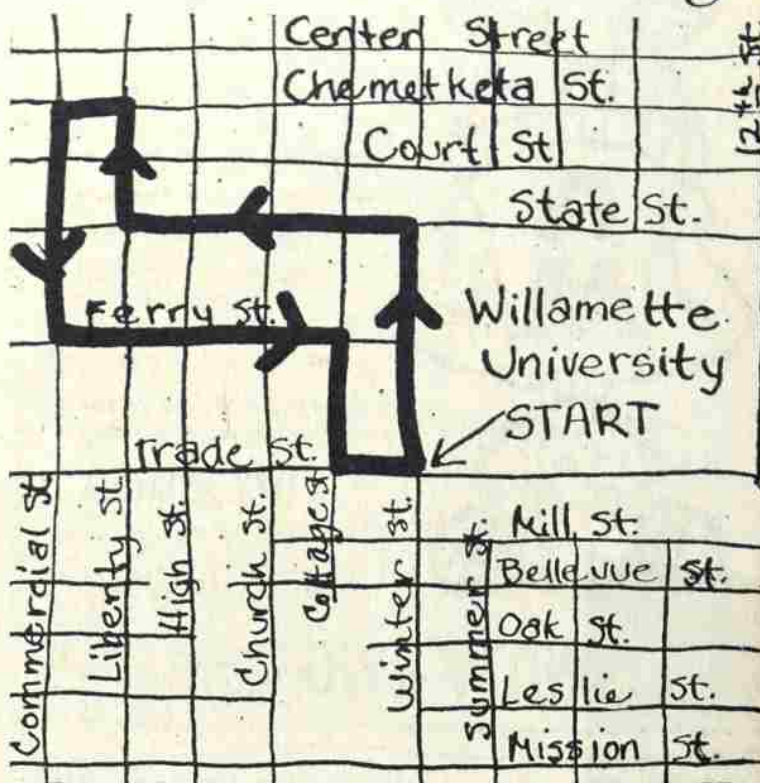 Center Street
Chemetketa St.
12th St.
Court St
State St.
Ferry St.
Willamette
University
START
Trade St.
Commercial St
Liberty St.
High St.
Church St.
Cottage St
Winter St.
Summer St.
Mill St.
Bellevue St.
Oak St.
Leslie St.
Mission St.